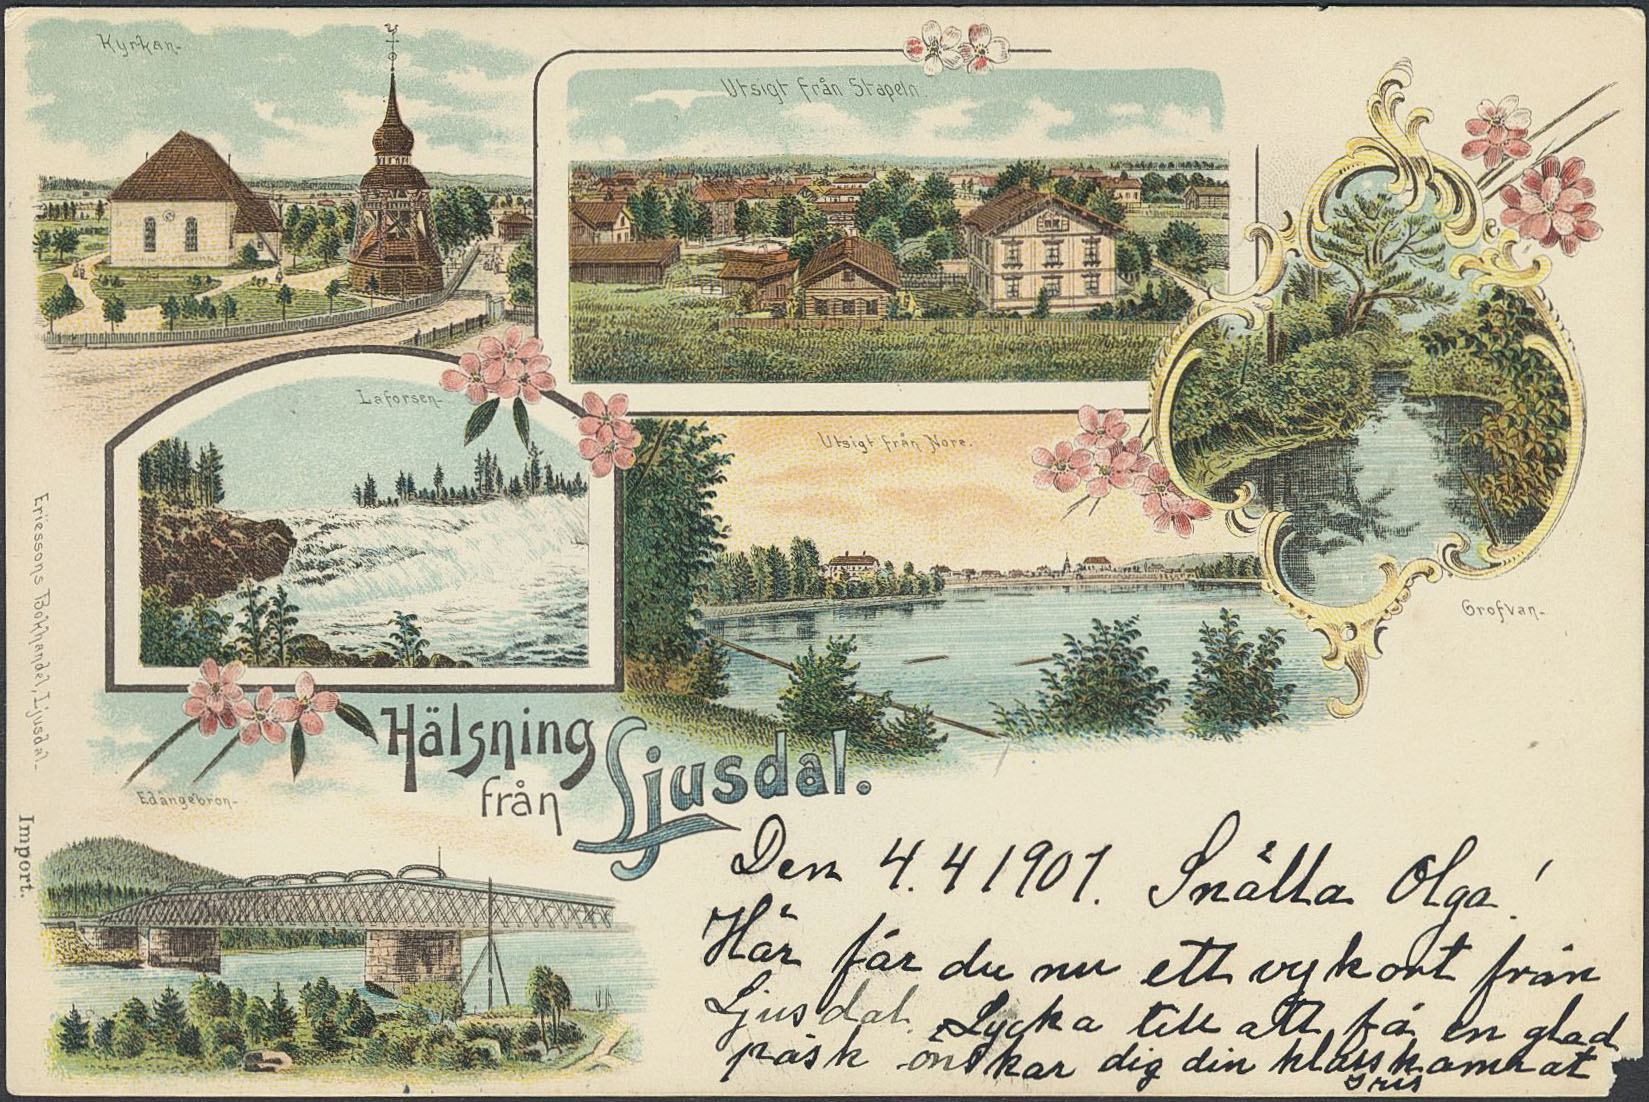 Kyrkan-
Utsigt från Stapeln.
Laforsen-
Utsigt från Nore.
Grofvan-
Hälsning
från
Ljusdal.
Edängebron-
Ericssons Bokhandel, Ljusdal-
Import.
Den 4.4 1901. Snälla Olga!
Här får du nu ett vykort från
Ljusdal. Lycka till att få en glad
påsk önskar dig din klasskamrat
Iris